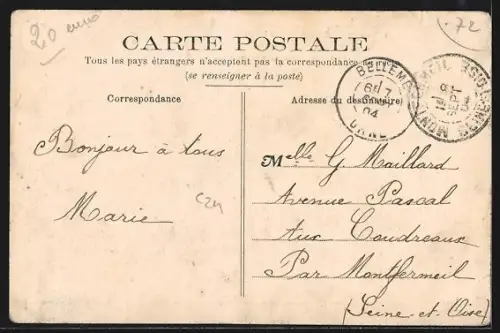 20 euro
-72
CARTE POSTALE
Tous les pays étrangers n'acceptent pas la correspondance
(se renseigner à la poste)
Correspondance
Adresse du destinataire
BELLEME
04
ORNE
SEPT
SEINE-ET-OISE
Bonjour à tous
Marie
C24
Melle G Maillard
Avenue Pascal
Aux Coudreaux
Par Montfermeil
(Seine-et-Oise)